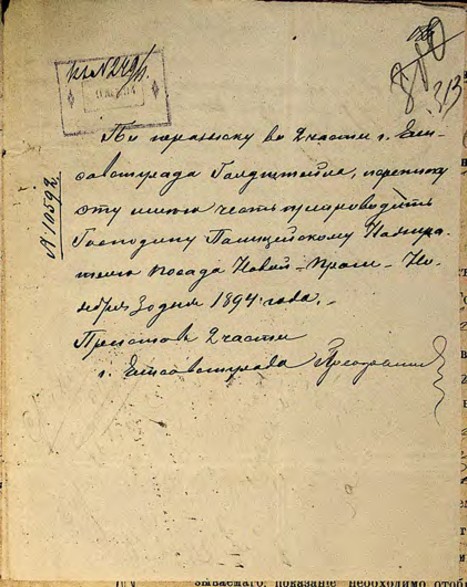 К № 2491
810
213
№ 10592
По розыску во 2 части г. Ели-
саветграда Гольдштейна, переписку
эту имею честь препроводить
Господину Полицейскому Надзира-
телю посада Новой-Праги. Но-
ября 30 дня 1894 года.
Пристав 2 части
г. Елисаветграда
зываемаго, показание необходимо отоб